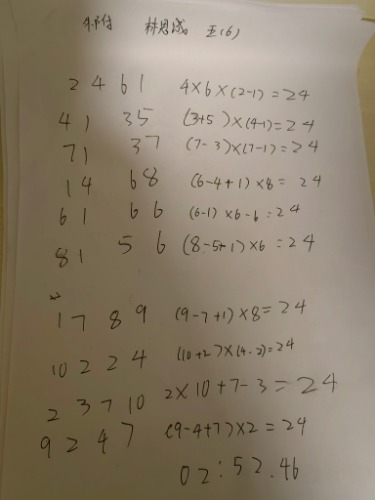 林思成 五(6)
2 4 6 1 4×6×(2-1)=24
4 1 3 5 (3+5)×(4-1)=24
7 1 3 7 (7-3)×(7-1)=24
1 4 6 8 (6-4+1)×8= 24
6 1 6 6 (6-1)×6-6=24
8 1 5 6 (8-5+1)×6=24
1 7 8 9 (9-7+1)×8=24
10 2 2 4 (10+2)×(4-2)=24
2 3 7 10 2×10+7-3=24
9 2 4 7 (9-4+7)×2=24
02:52.46